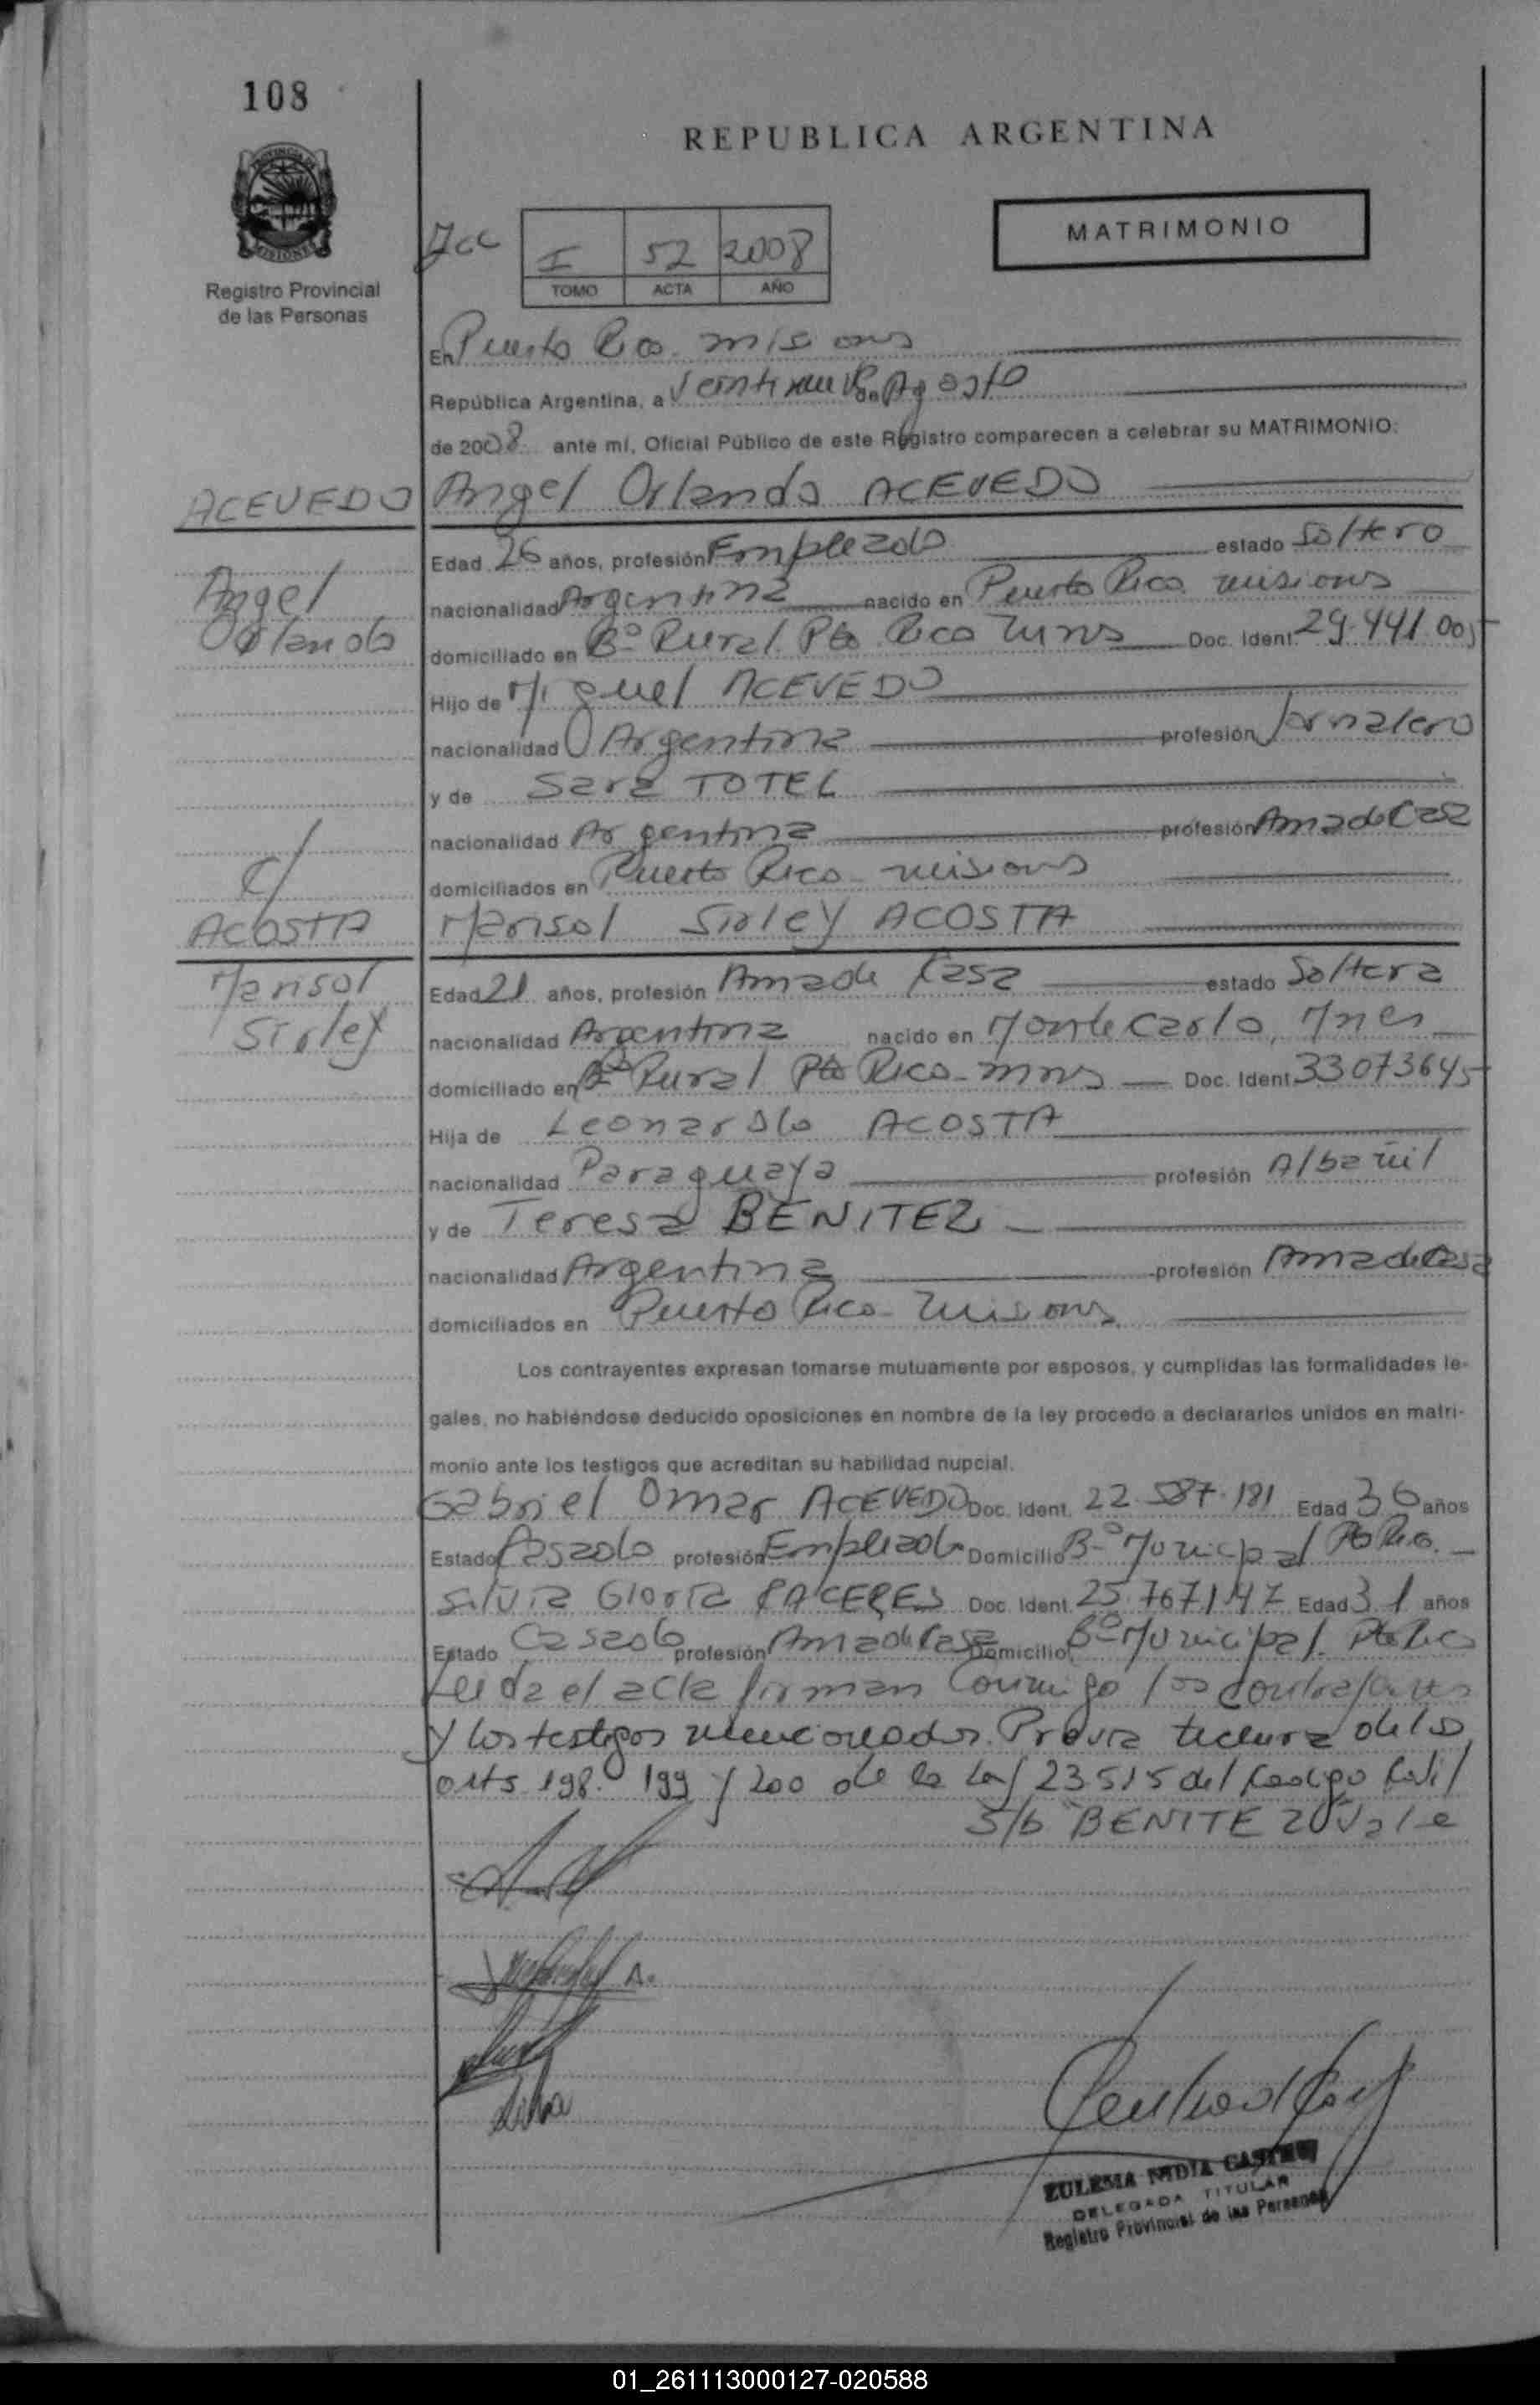 108
REPUBLICA ARGENTINA
PROVINCIA DE
MISIONES
Registro Provincial
de las Personas
I 52 2008
TOMO ACTA AÑO
MATRIMONIO
En Puerto Rico. misiones
República Argentina, a Veintinueve de Agosto
de 2008 ante mí, Oficial Público de este Registro comparecen a celebrar su MATRIMONIO:
ACEVEDO
Angel
Orlando
c/
ACOSTA
Marisol
Sirley
Angel Orlando ACEVEDO
Edad 26 años, profesión Empleado estado Soltero
nacionalidad Argentina nacido en Puerto Rico misiones
domiciliado en Bº Rural Pto Rico Mns Doc. Ident. 29.441.005
Hijo de Miguel ACEVEDO
nacionalidad Argentina profesión Jornalero
y de Sara TOTEL
nacionalidad Argentina profesión Ama de Casa
domiciliados en Puerto Rico - misiones
Marisol Sirley ACOSTA
Edad 21 años, profesión Ama de Casa estado Soltera
nacionalidad Argentina nacido en Monte Carlo, Mnes
domiciliado en Bº Rural Pto Rico - mns Doc. Ident. 33073645
Hija de Leonardo ACOSTA
nacionalidad Paraguaya profesión Albañil
y de Teresa BENITEZ
nacionalidad Argentina profesión Ama de Casa
domiciliados en Puerto Rico - Misiones
Los contrayentes expresan tomarse mutuamente por esposos, y cumplidas las formalidades le-
gales, no habiéndose deducido oposiciones en nombre de la ley procedo a declararlos unidos en matri-
monio ante los testigos que acreditan su habilidad nupcial.
Gabriel Omar ACEVEDO Doc. Ident. 22.587.181 Edad 36 años
Estado Casado profesión Empleado Domicilio Bº Municipal Pto Rico.
Silvia Gloria CACERES Doc. Ident. 25.767.147 Edad 31 años
Estado Casado profesión Ama de Casa Domicilio Bº Municipal. Pto Rico
Leida el acta firman Conmigo los contrayentes
y los testigos mencionados. Previa lectura de los
arts 198. 199 y 200 de la Ley 23.515 del Codigo Civil
S/b BENITEZ Vale
ZULEMA NIDIA CASTRO
DELEGADA TITULAR
Registro Provincial de las Personas
01_261113000127-020588